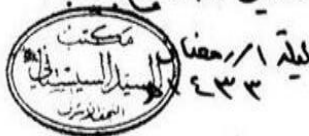 ليلة ١/رمضان
١٤٣٣
مكتب
السيد السيستاني
النجف الأشرف